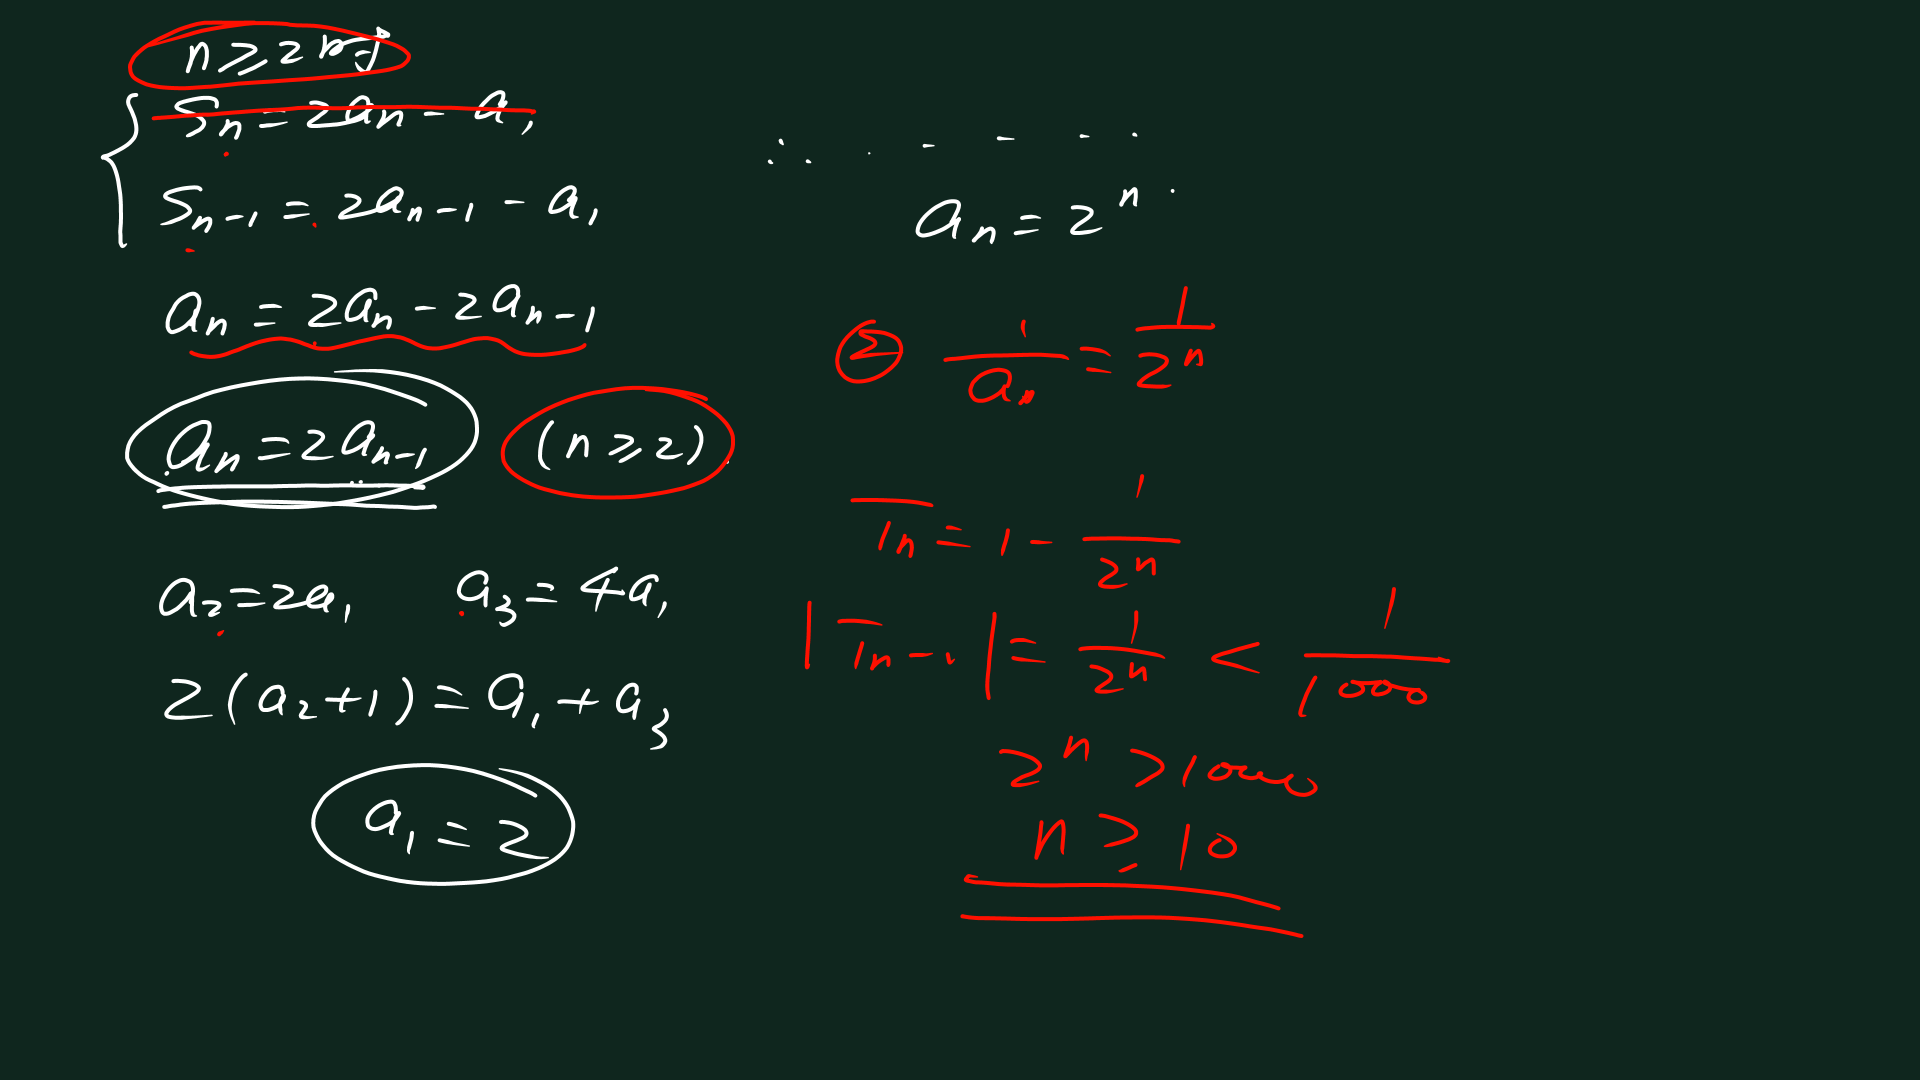 n ≥ 2 时
Sₙ = 2aₙ - a₁
Sₙ₋₁ = 2aₙ₋₁ - a₁
aₙ = 2aₙ - 2aₙ₋₁
aₙ = 2aₙ₋₁ (n ≥ 2)
a₂ = 2a₁ a₃ = 4a₁
2(a₂+1) = a₁ + a₃
a₁ = 2
∴
aₙ = 2ⁿ
② 1/aₙ = 1/2ⁿ
Tₙ = 1 - 1/2ⁿ
|Tₙ - 1| = 1/2ⁿ < 1/1000
2ⁿ > 1000
n ≥ 10